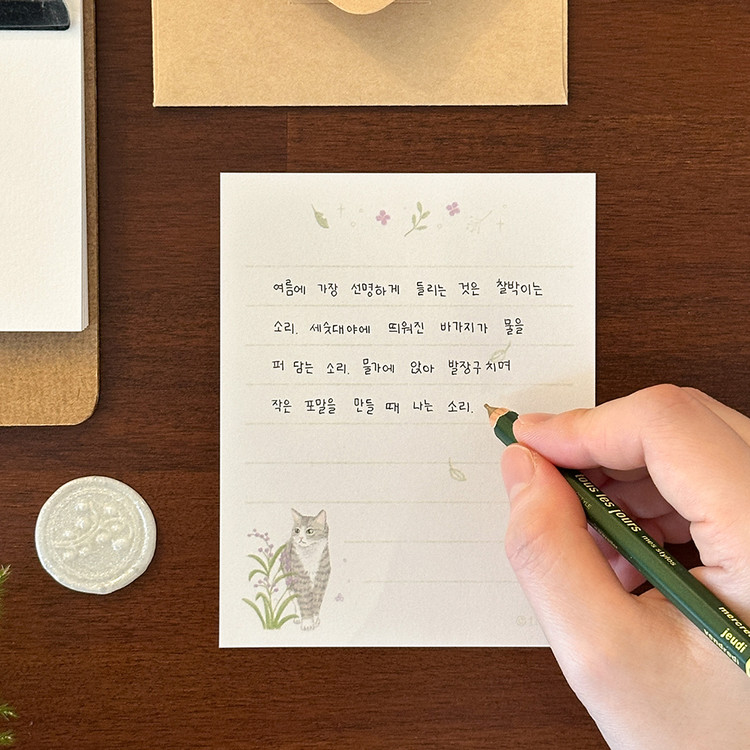 여름에 가장 선명하게 들리는 것은 찰박이는
소리. 세숫대야에 띄워진 바가지가 물을
퍼 담는 소리. 물가에 앉아 발장구 치며
작은 포말을 만들 때 나는 소리.
tous les jours mes stylos
mercredi
jeudi
vendredi